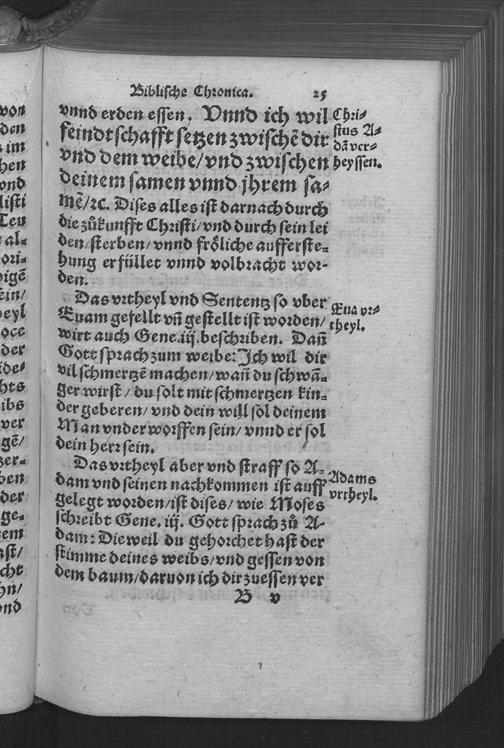 von
den
im
hen
vnd
listi
Teu
al-
ori-
vigẽ
ein/
heyl
oce
der
ide-
hts
ibs
ver
gẽ/
zer-
ben
der
ge-
tem
ast/
cht
hn/
ond
Biblische Chronica. 25
vnnd erden essen. Vnnd ich wil
feindtschafft setzen zwischẽ dir
vnd dem weibe/ vnd zwischen
deinem samen vnnd jhrem sa-
mẽ/ ꝛc. Dises alles ist darnach durch
die zůkunfft Christi/ vnd durch sein lei
den/ sterben/ vnnd fröliche aufferste-
hung erfüllet vnnd volbracht wor-
den.
Das vrtheyl vnd Sententz so vber
Euam gefellt vñ gestellt ist worden/
wirt auch Gene. iij. beschriben. Dañ
Gott sprach zum weibe: Ich wil dir
vil schmertzẽ machen/ wañ du schwã-
ger wirst/ du solt mit schmertzen kin-
der geberen/ vnd dein will sol deinem
Man vnderworffen sein/ vnnd er sol
dein herr sein.
Das vrtheyl aber vnd straff so A-
dam vnd seinen nachkommen ist auff
gelegt worden/ ist dises/ wie Moses
schreibt Gene. iij. Gott sprach zů A-
dam: Dieweil du gehorchet hast der
stimme deines weibs/ vnd gessen von
dem baum/ daruon ich dir zuessen ver
B v
Chri-
stus A-
dã ver-
heyssen.
Eua vr-
theyl.
Adams
vrtheyl.